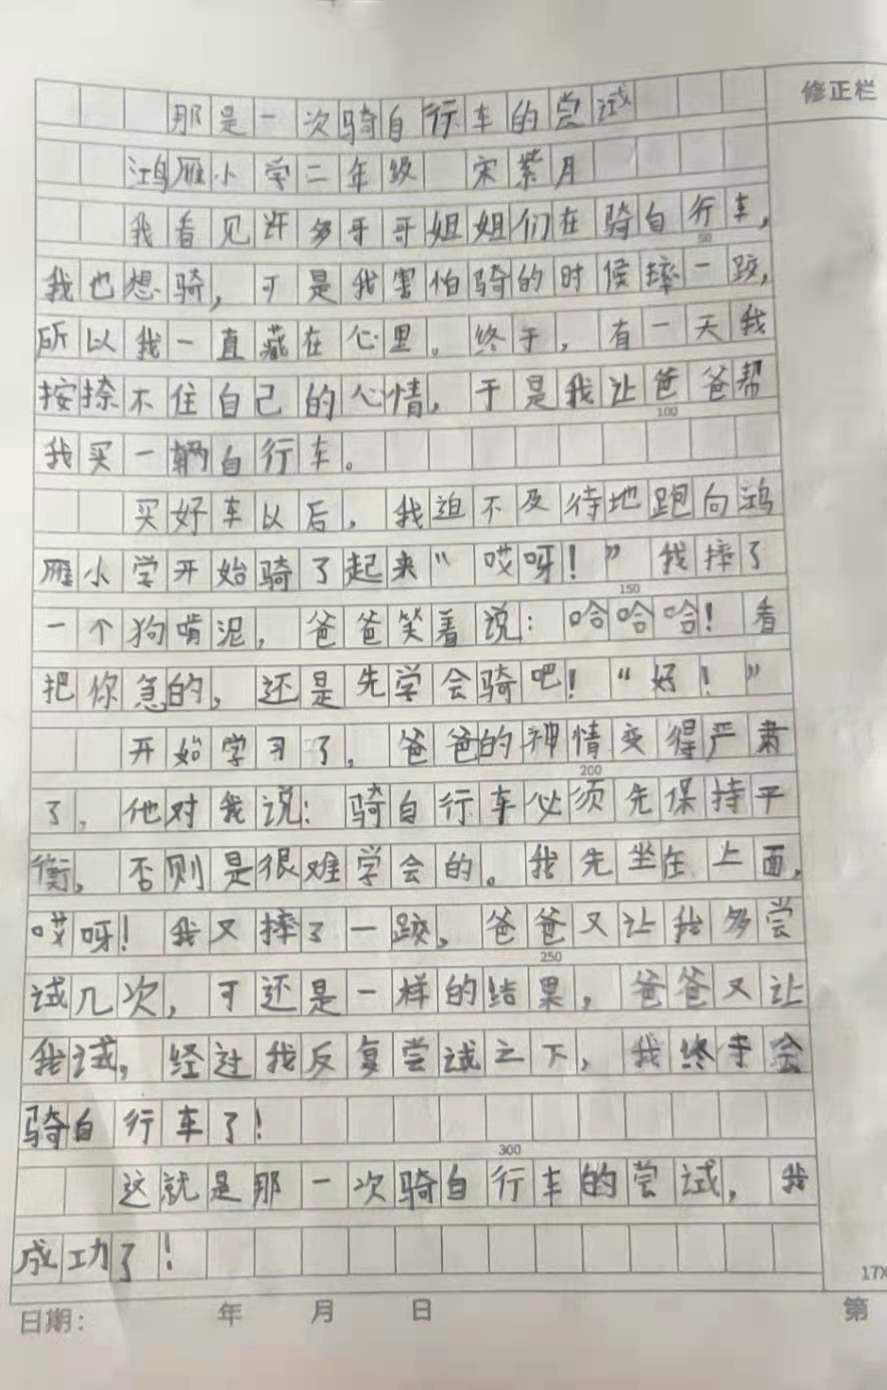 修正栏
那是一次骑自行车的尝试
鸿雁小学二年级 宋紫月
我看见许多哥哥姐姐们在骑自行车,
50
我也想骑,可是我害怕骑的时候摔一跤,
所以我一直藏在心里。终于,有一天我
按捺不住自己的心情,于是我让爸爸帮
100
我买一辆自行车。
买好车以后,我迫不及待地跑向鸿
雁小学开始骑了起来“哎呀!”我摔了
150
一个狗啃泥,爸爸笑着说:哈哈哈!看
把你急的,还是先学会骑吧!“好!”
开始学习了,爸爸的神情变得严肃
200
了,他对我说:骑自行车必须先保持平
衡,否则是很难学会的。我先坐在上面,
哎呀!我又摔了一跤,爸爸又让我多尝
250
试几次,可还是一样的结果,爸爸又让
我试,经过我反复尝试之下,我终于会
骑自行车了!
300
这就是那一次骑自行车的尝试,我
成功了!
17X
日期: 年 月 日 第